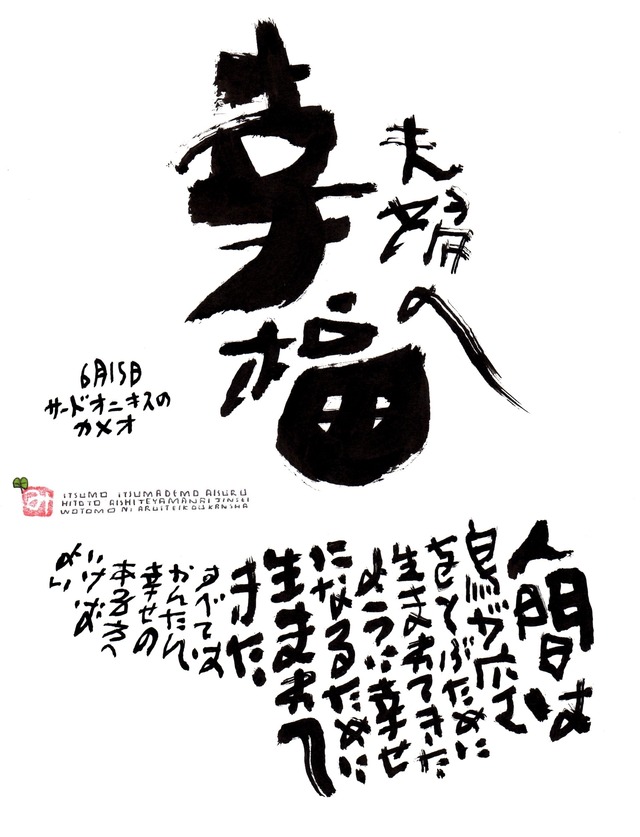 夫婦へ
幸福
6月15日
サードオニキスの
カメオ
み
ITSUMO ITSUMADEMO AISURU
HITOTO AISHITEYAMANAI JINSEI
WOTOMO NI ARUITEIKOU KANSHA
人間は
鳥が大空
をとぶために
生まれてきた
ように幸せ
になるために
生まれて
きた
すべては
かんたんで
幸せの
いけば
よい